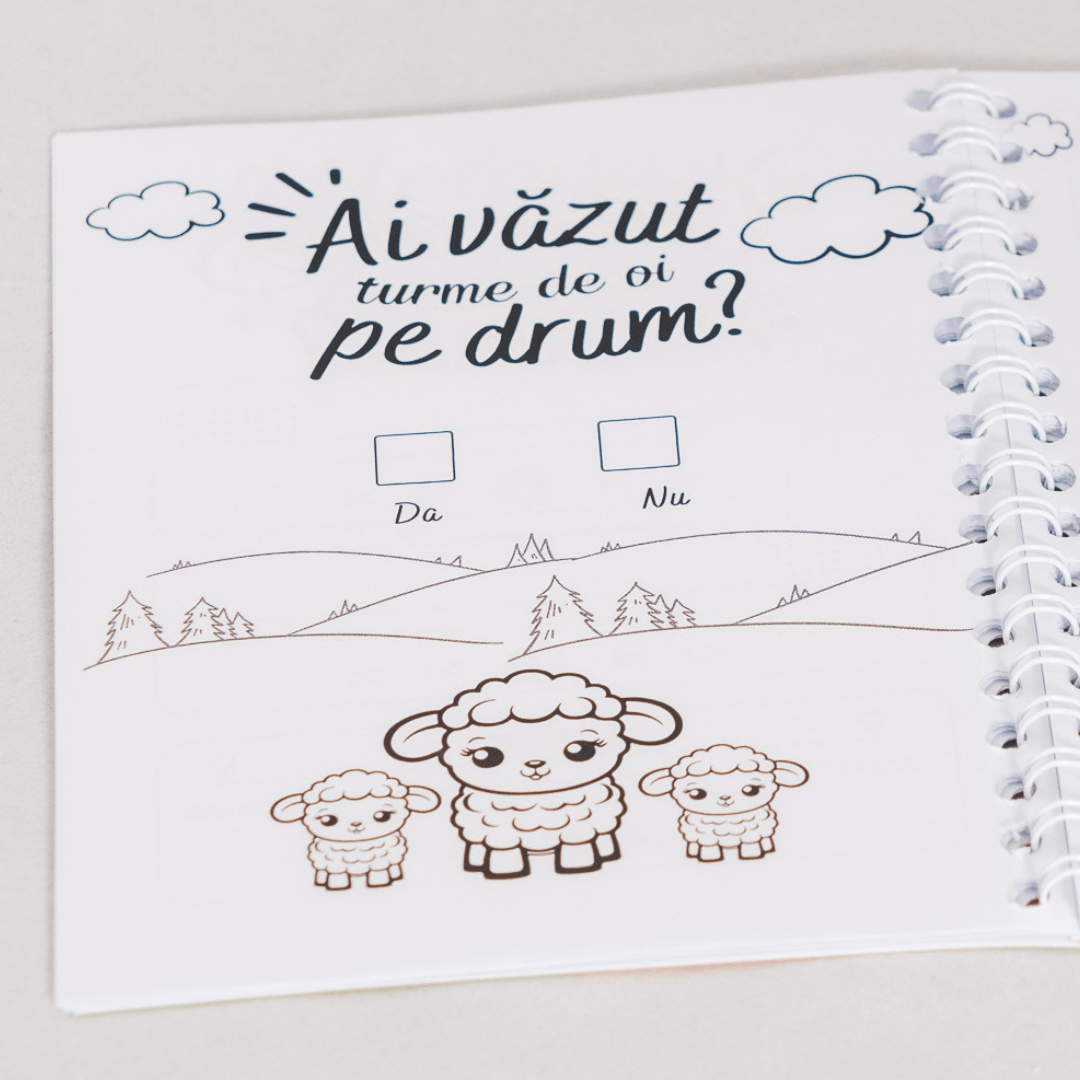 Ai văzut
turme de oi
pe drum?
Da
Nu